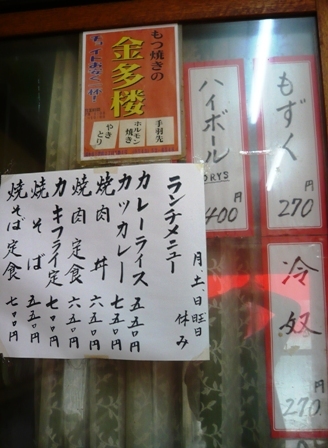 もつ焼きの
金多楼
手羽先
ホルモン焼き
やきとり
ハイボール
DRYS
400円
もずく
270円
冷奴
270円
ランチメニュー
月、土、日旺日休み
カレーライス 五五〇円
カツカレー 七五〇円
焼肉丼 六五〇円
焼肉定食 六五〇円
カキフライ定 七〇〇円
焼そば 五五〇円
焼そば定食 七〇〇円